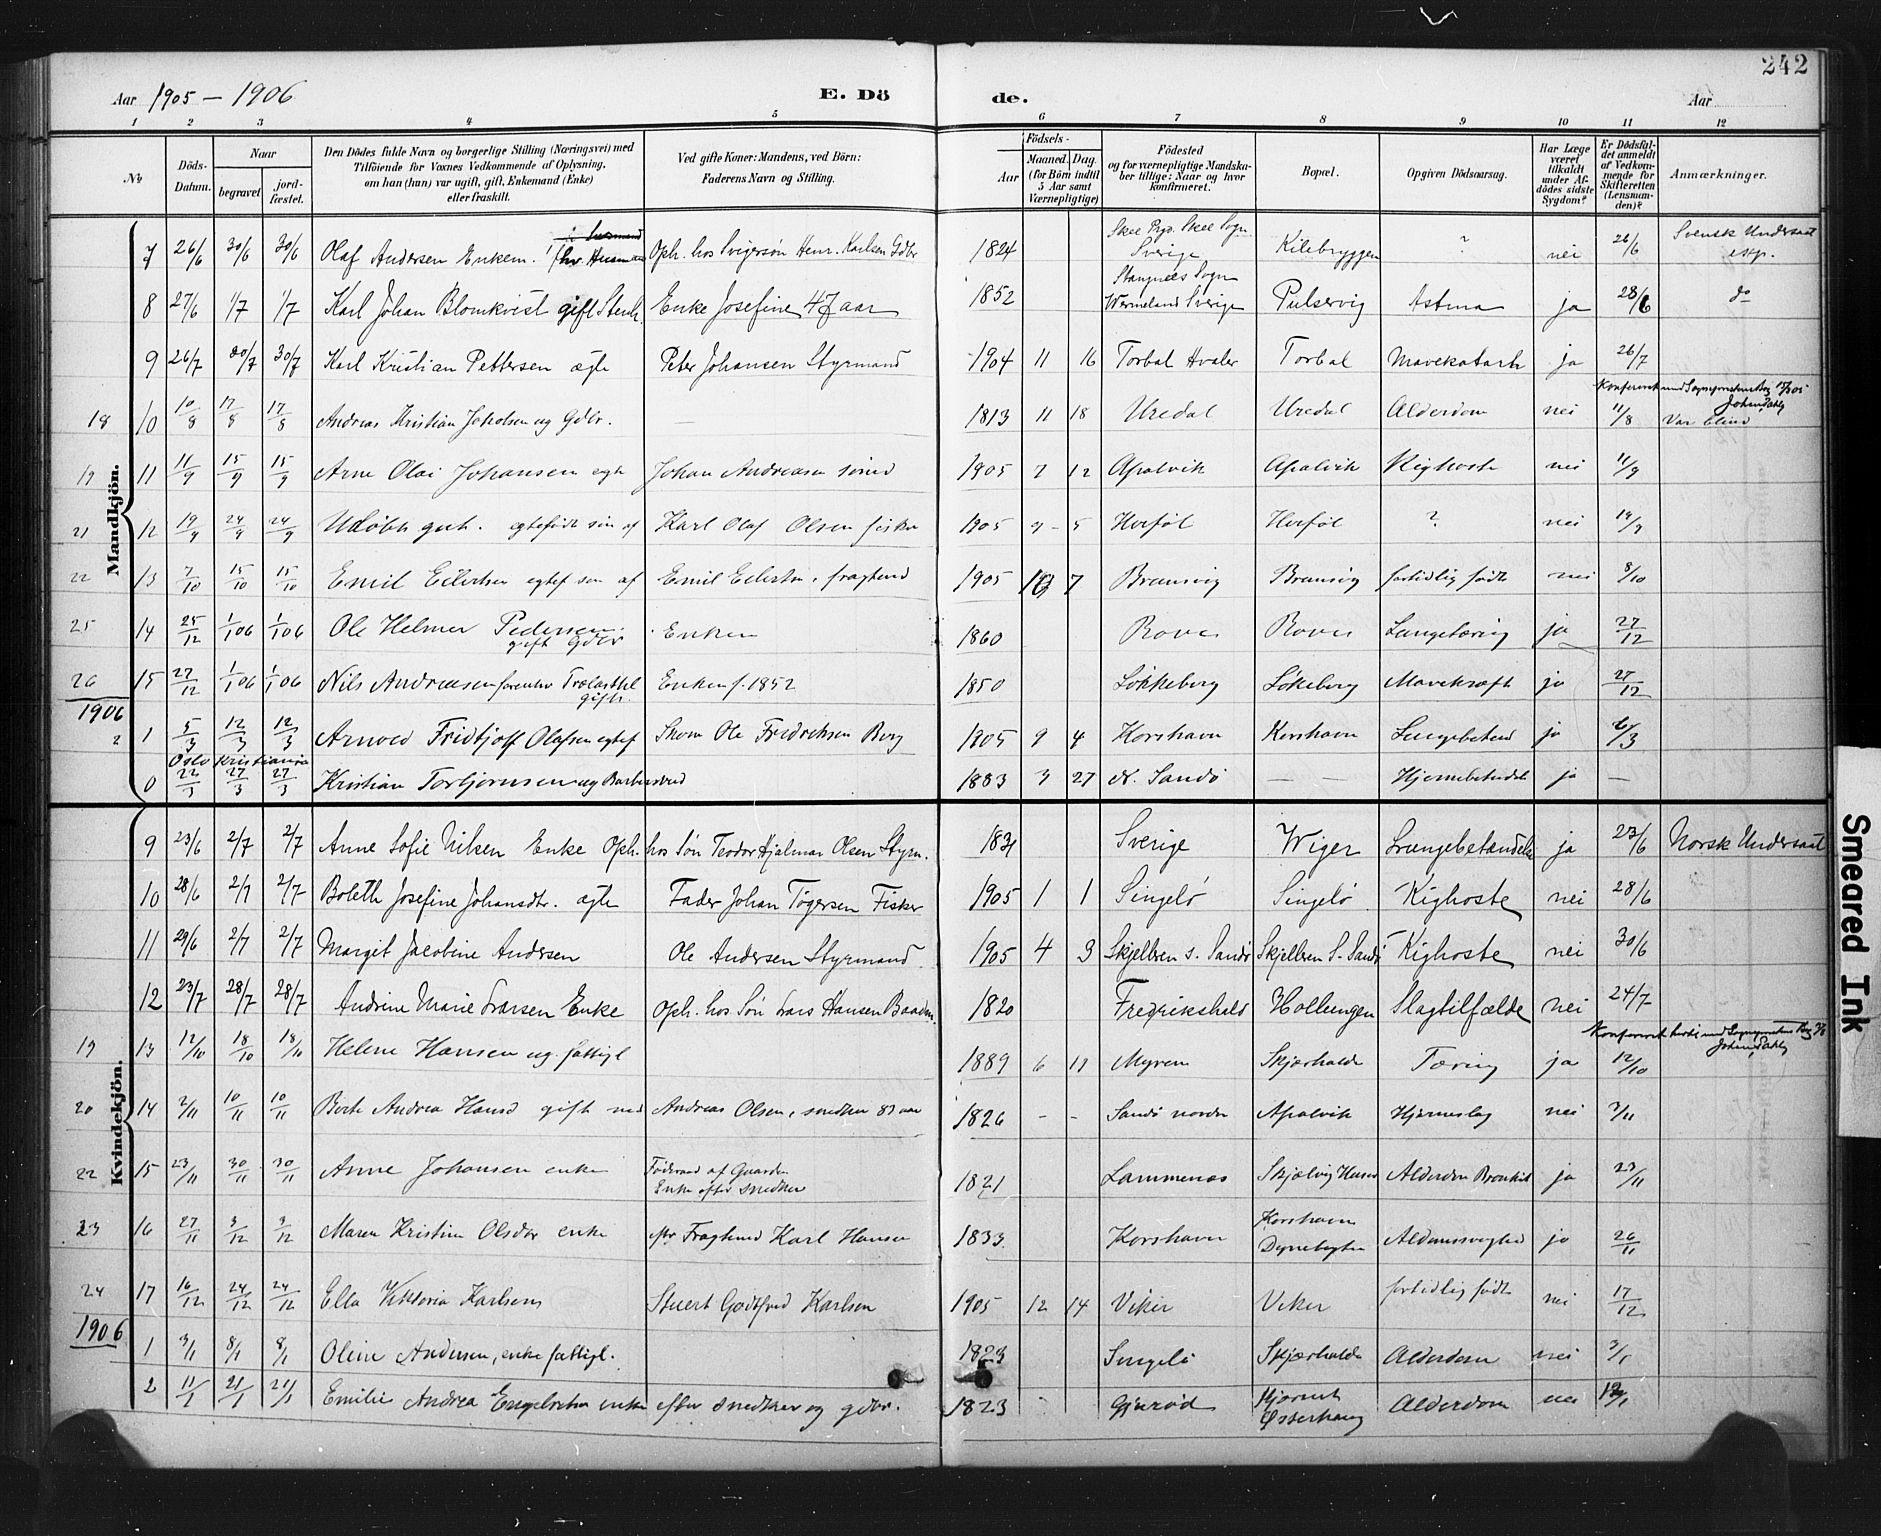 242
Aar 1905 – 1906 E. Dö de. Aar
1 2 3 4 5 6 7 8 9 10 11 12
No
Döds-Datum.
Naar begravet jord-fæstet.
Den Dödes fulde Navn og borgerlige Stilling (Næringsvei) med Tilföiende for Voxnes Vedkommende af Oplysning, om han (hun) var ugift, gift, Enkemand (Enke) eller fraskilt.
Ved gifte Koner: Mandens, ved Börn: Faderens Navn og Stilling.
Födsels- Aar Maaned. Dag. (for Börn indtil 5 Aar samt Værnepligtige)
Födested og for værnepligtige Mandskaber tillige: Naar og hvor konfirmeret.
Bopæl.
Opgiven Dödsaarsag.
Har Læge været tilkaldt under Afdödes sidste Sygdom?
Er Dödsfaldet anmeldt af Vedkommende for Skifteretten (Lensmanden)?
Anmærkninger.
Mandkjön.
7 26/6 30/6 30/6 Olaf Andersen Enkem. Oph. hos Svigersøn Henr. Karlsen Gdbr 1824 Skee Sogn Sverige Kilebryggen ? nei 26/6 Svensk Undersaat
8 27/6 1/7 1/7 Karl Johan Blomkvist gift Stenh. Enke Josefine 47 aar 1852 Wermeland Sverige Pulservig Astma ja 28/6 do
9 26/7 30/7 30/7 Karl Kristian Pettersen ægte Peter Johansen Styrmand 1904 11 16 Torbal Hvaler Torbal Mavekatarh ja 26/7
18 10 10/8 17/8 17/8 Andreas Kristian Jakobsen ug Gdbr. — 1813 11 18 Uredal Uredal Alderdom nei 11/8 Var blind
19 11 11/9 15/9 15/9 Arne Olai Johansen egte Johan Andreasen 1905 7 12 Apalvik Apalvik Kighoste nei 11/9
21 12 19/9 24/9 24/9 Udøbt gut. egtefødt søn af Karl Olaf Olsen fisker 1905 9 5 Herføl Herføl ? nei 19/9
22 13 7/10 15/10 15/10 Emil Eilertsen egtef søn af Emil Eilertsen, fragtemd 1905 10 7 Bramsvig Bramsvig fortidlig født nei 8/10
25 14 25/12 1/1 06 1/1 06 Ole Helmer Pedersen gift Gdbr Enken 1860 Rove Rove Lungetæring ja 27/12
26 15 27/12 1/1 06 1/1 06 Nils Andreasen forenhv Trælasthl gift. Enken f. 1852 1850 Løkkeberg Løkeberg Mavekræft ja 27/12
1906
2 1 5/3 12/3 12/3 Arnold Fridtjoff Olafsen egtef Skom Ole Fredriksen Berg 1905 9 4 Korshavn Korshavn Lungebetend ja 6/3
Oslo Kristiania
0 22/3 27/3 27/3 Kristian Torbjørnsen ug Barbersvend 1883 3 27 N. Sandø — — Hjernebetendelse ja —
Kvindekjön.
9 23/6 2/7 2/7 Anne Sofie Nilsen Enke Oph. hos Søn Teodor Hjalmar Olsen Styrm. 1831 Sverige Wiger Lungebetændelse ja 23/6 Norsk Undersaat
10 28/6 2/7 2/7 Boleth Josefine Johansdtr. ægte Fader Johan Tøgersen Fisker 1905 1 1 Singelø Singelø Kighoste nei 28/6
11 29/6 2/7 2/7 Margit Jacobine Andersen Ole Andersen Styrmand 1905 4 3 Skjelleren S. Sandø Skjelleren S. Sandø Kighoste nei 30/6
12 23/7 28/7 28/7 Andrine Marie Larsen Enke Oph. hos Søn Lars Hansen Baadm. 1820 Fredrikshald Hollungen Slagtilfælde nei 24/7
19 13 12/10 18/10 18/11 Helene Hansen ug. fattigl 1889 6 11 Myren Skjærhalde Tæring ja 12/10
20 14 2/11 10/11 10/11 Berte Andrea Hansd gift med Andreas Olsen, snedker 83 aar 1826 - - Sandø nordre Apalvik Hjerneslag nei 3/11
22 15 23/11 30/11 30/11 Anne Johansen enke Føderaad af Gaarden Enke efter snedker 1821 Lammenæs Skjælvig Alderdom Bronkit ja 23/11
23 16 27/11 3/12 3/12 Maren Kristine Olsdtr enke eftr Fragtemd Karl Hansen 1833 Korshavn Korshavn Alderdomssvaghed ja 26/11
24 17 16/12 24/12 24/12 Ella Viktoria Karlsen Stuert Godtfred Karlsen 1905 12 14 Viker Viker fortidlig født nei 17/12
1906
1 3/1 8/1 8/1 Oline Andersen, enke fattigl. 1823 Singelø Skjærhalde Alderdom nei 3/1
2 11/1 21/1 21/1 Emilie Andrea Engelsten enke efter snedker og gdbr. 1823 Gjurød Alderdom nei
Smeared Ink